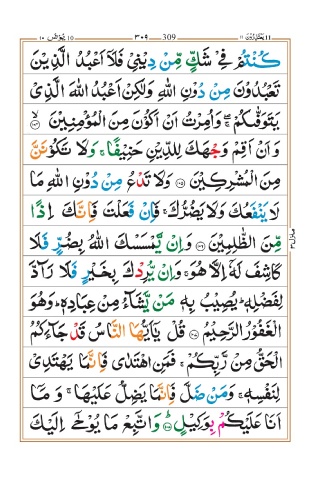 يونس ١٠ ٣٠٩ 309 يعتذرون ١١
كُنْتُمْ فِيْ شَكٍّ مِّنْ دِيْنِيْ فَلَآ اَعْبُدُ الَّذِيْنَ
تَعْبُدُوْنَ مِنْ دُوْنِ اللهِ وَلٰكِنْ اَعْبُدُ اللهَ الَّذِيْ
يَتَوَفّٰىكُمْ ۖ وَاُمِرْتُ اَنْ اَكُوْنَ مِنَ الْمُؤْمِنِيْنَ ۙ﴿١٠٤﴾
وَ اَنْ اَقِمْ وَجْهَكَ لِلدِّيْنِ حَنِيْفًا ۚ وَلَا تَكُوْنَنَّ
مِنَ الْمُشْرِكِيْنَ ﴿١٠٥﴾ وَلَا تَدْعُ مِنْ دُوْنِ اللهِ مَا
لَا يَنْفَعُكَ وَلَا يَضُرُّكَ ۚ فَاِنْ فَعَلْتَ فَاِنَّكَ اِذًا
مِّنَ الظّٰلِمِيْنَ ﴿١٠٦﴾ وَاِنْ يَّمْسَسْكَ اللهُ بِضُرٍّ فَلَا
كَاشِفَ لَهٗٓ اِلَّا هُوَ ۚ وَاِنْ يُّرِدْكَ بِخَيْرٍ فَلَا رَآدَّ
لِفَضْلِهٖ ؕ يُصِيْبُ بِهٖ مَنْ يَّشَآءُ مِنْ عِبَادِهٖ ؕ وَهُوَ
الْغَفُوْرُ الرَّحِيْمُ ﴿١٠٧﴾ قُلْ يٰٓاَيُّهَا النَّاسُ قَدْ جَآءَكُمُ
الْحَقُّ مِنْ رَّبِّكُمْ ۚ فَمَنِ اهْتَدٰى فَاِنَّمَا يَهْتَدِيْ
لِنَفْسِهٖ ۚ وَمَنْ ضَلَّ فَاِنَّمَا يَضِلُّ عَلَيْهَا ۚ وَ مَآ
اَنَا عَلَيْكُمْ بِوَكِيْلٍ ؕ﴿١٠٨﴾ وَاتَّبِعْ مَا يُوْحٰٓى اِلَيْكَ